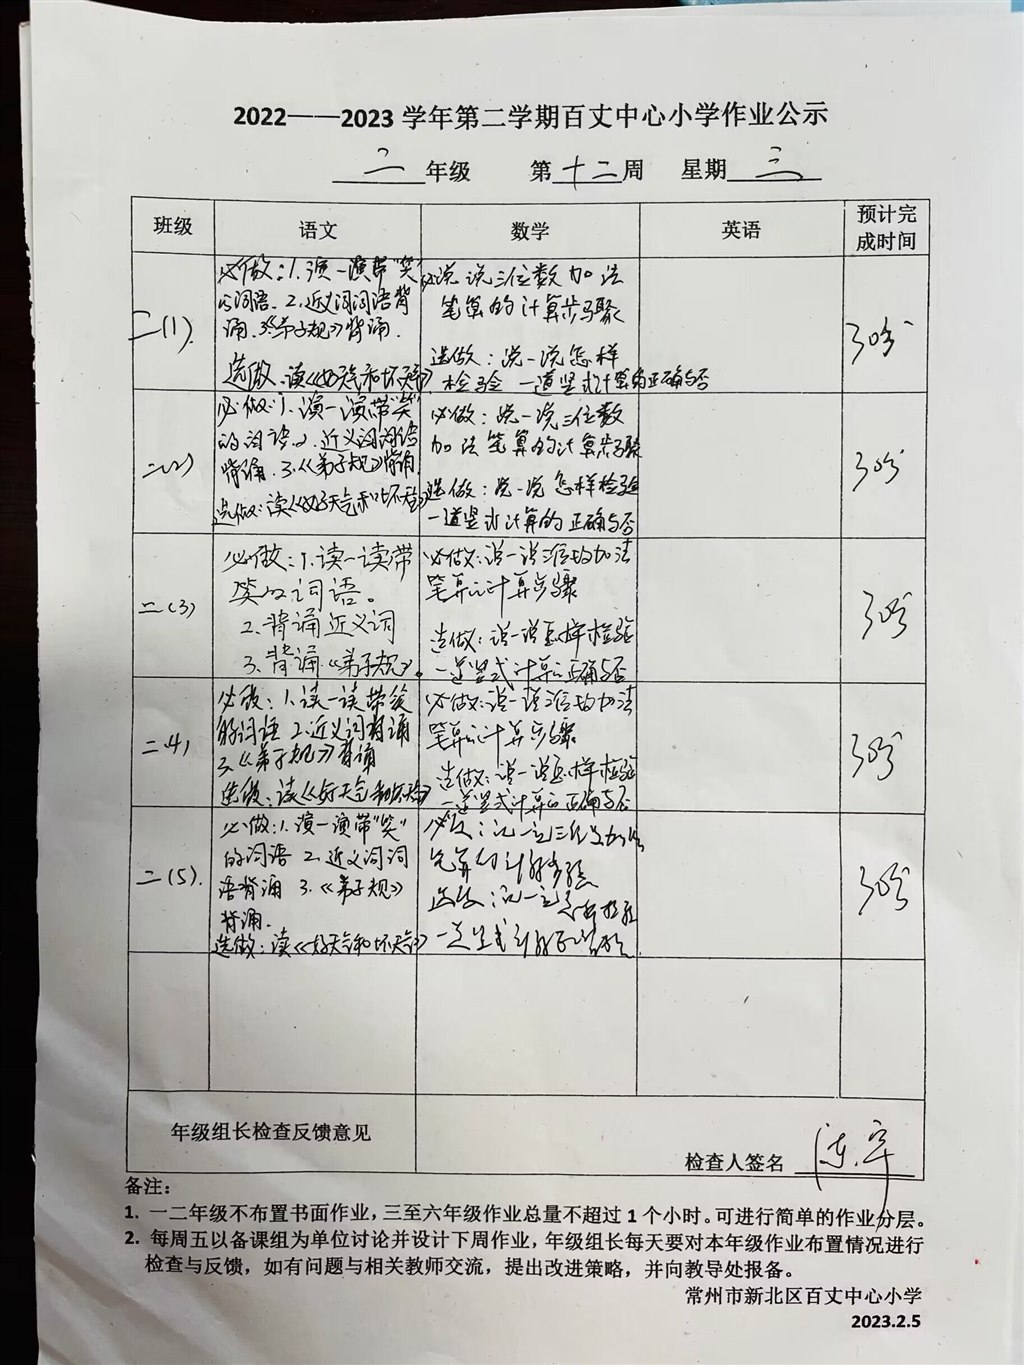 2022——2023 学年第二学期百丈中心小学作业公示
二 年级 第 十二 周 星期 三
班级 语文 数学 英语 预计完成时间
二(1).
必做:1.演一演带"笑"
的词语. 2.近义词词语背
诵.3.《弟子规》背诵.
选做.读《好天气和坏天气》
必说说三位数加法
笔算的计算步骤
选做:说一说怎样
检验一道竖式计算的正确与否
30分
二(2)
必做:1.演一演带"笑"
的词语2.近义词词语
背诵.3.《弟子规》背诵
选做:读《好天气和坏天气》
必做:说一说三位数
加法笔算的计算步骤
选做:说一说怎样检验
一道竖式计算的正确与否
30分
二(3)
必做:1.读一读带
笑的词语。
2.背诵近义词
3.背诵《弟子规》。
必做:说一说三位数加法
笔算的计算步骤
选做:说一说怎样检验
一道竖式计算的正确与否
30分
二(4)
必做:1.读一读带笑
的词语 2.近义词背诵
3.《弟子规》背诵
选做:读《好天气和坏天气》
必做:说一说三位数加法
笔算的计算步骤
选做:说一说怎样检验
一道竖式计算的正确与否
30分
二(5).
必做:1.演一演带"笑"
的词语 2.近义词词
语背诵 3.《弟子规》
背诵.
选做:读《好天气和坏天气》
必做:说一说三位数加法
笔算的计算步骤
选做:说一说怎样检验
一道竖式计算
30分
年级组长检查反馈意见
检查人签名
备注:
1. 一二年级不布置书面作业,三至六年级作业总量不超过 1 个小时。可进行简单的作业分层。
2. 每周五以备课组为单位讨论并设计下周作业,年级组长每天要对本年级作业布置情况进行
检查与反馈,如有问题与相关教师交流,提出改进策略,并向教导处报备。
常州市新北区百丈中心小学
2023.2.5